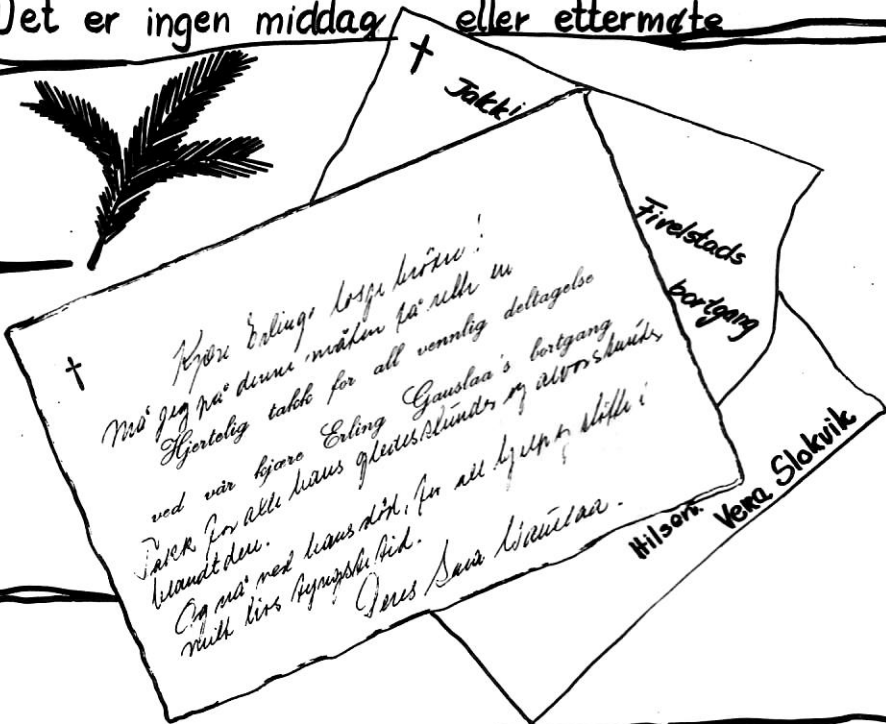 Det er ingen middag eller ettermøte
Takk i
Firelstads
bortgang
Hilsen
Vera Slokvik
Kjære Erlings losje brödre!
Må jeg på denne måten få rette en
Hjertelig takk for all vennlig deltagelse
ved vår kjære Erling Gauslaa's bortgang
Takk for alle hans gledesstunder og alvorsstunder
blandt dere.
Og nå ved hans död, for all hjelp og støtte i
mitt livs tyngste tid.
Deres Gauslaa.